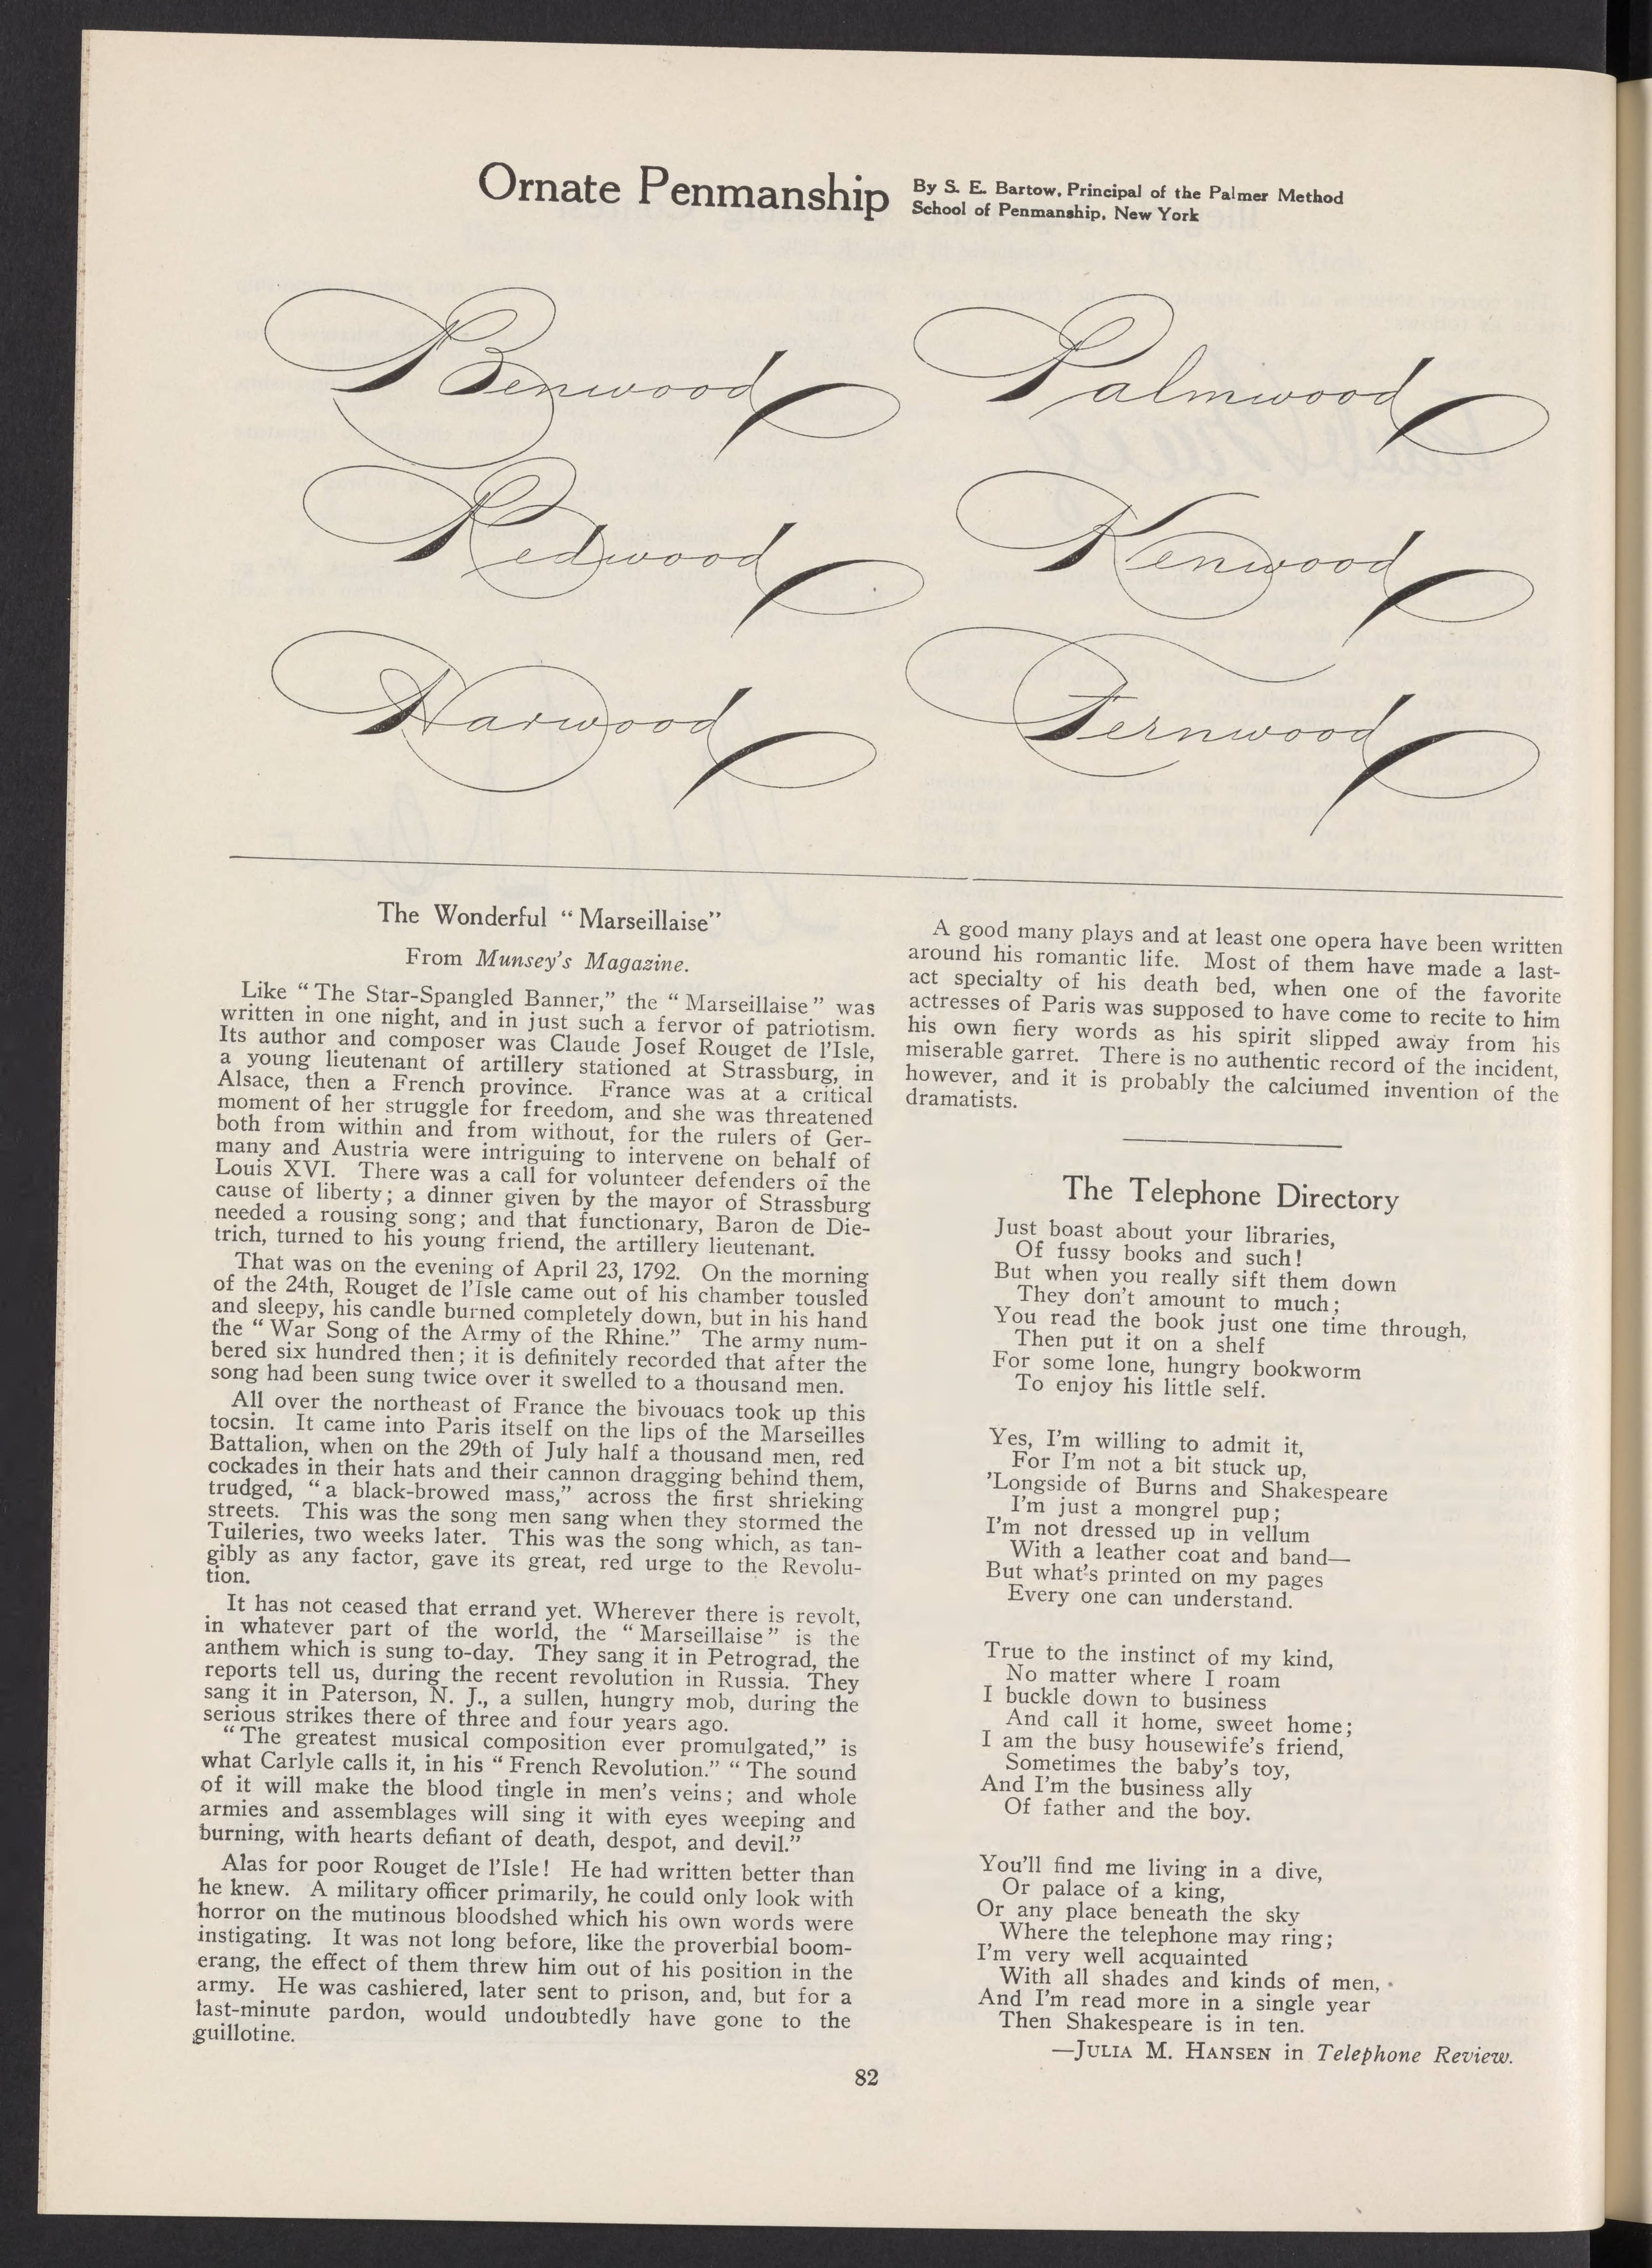 Ornate Penmanship
By S. E. Bartow, Principal of the Palmer Method
School of Penmanship, New York
Benwood
Palmwood
Redwood
Kenwood
Harwood
Fernwood
The Wonderful “Marseillaise”
From Munsey's Magazine.
Like “The Star-Spangled Banner,” the “Marseillaise” was
written in one night, and in just such a fervor of patriotism.
Its author and composer was Claude Josef Rouget de l'Isle,
a young lieutenant of artillery stationed at Strassburg, in
Alsace, then a French province. France was at a critical
moment of her struggle for freedom, and she was threatened
both from within and from without, for the rulers of Ger-
many and Austria were intriguing to intervene on behalf of
Louis XVI. There was a call for volunteer defenders of the
cause of liberty; a dinner given by the mayor of Strassburg
needed a rousing song; and that functionary, Baron de Die-
trich, turned to his young friend, the artillery lieutenant.
That was on the evening of April 23, 1792. On the morning
of the 24th, Rouget de l'Isle came out of his chamber tousled
and sleepy, his candle burned completely down, but in his hand
the “War Song of the Army of the Rhine.” The army num-
bered six hundred then; it is definitely recorded that after the
song had been sung twice over it swelled to a thousand men.
All over the northeast of France the bivouacs took up this
tocsin. It came into Paris itself on the lips of the Marseilles
Battalion, when on the 29th of July half a thousand men, red
cockades in their hats and their cannon dragging behind them,
trudged, “a black-browed mass,” across the first shrieking
streets. This was the song men sang when they stormed the
Tuileries, two weeks later. This was the song which, as tan-
gibly as any factor, gave its great, red urge to the Revolu-
tion.
It has not ceased that errand yet. Wherever there is revolt,
in whatever part of the world, the “Marseillaise” is the
anthem which is sung to-day. They sang it in Petrograd, the
reports tell us, during the recent revolution in Russia. They
sang it in Paterson, N. J., a sullen, hungry mob, during the
serious strikes there of three and four years ago.
“The greatest musical composition ever promulgated,” is
what Carlyle calls it, in his “French Revolution.” “The sound
of it will make the blood tingle in men's veins; and whole
armies and assemblages will sing it with eyes weeping and
burning, with hearts defiant of death, despot, and devil.”
Alas for poor Rouget de l'Isle! He had written better than
he knew. A military officer primarily, he could only look with
horror on the mutinous bloodshed which his own words were
instigating. It was not long before, like the proverbial boom-
erang, the effect of them threw him out of his position in the
army. He was cashiered, later sent to prison, and, but for a
last-minute pardon, would undoubtedly have gone to the
guillotine.
A good many plays and at least one opera have been written
around his romantic life. Most of them have made a last-
act specialty of his death bed, when one of the favorite
actresses of Paris was supposed to have come to recite to him
his own fiery words as his spirit slipped away from his
miserable garret. There is no authentic record of the incident,
however, and it is probably the calciumed invention of the
dramatists.
The Telephone Directory
Just boast about your libraries,
Of fussy books and such!
But when you really sift them down
They don't amount to much;
You read the book just one time through,
Then put it on a shelf
For some lone, hungry bookworm
To enjoy his little self.
Yes, I'm willing to admit it,
For I'm not a bit stuck up,
'Longside of Burns and Shakespeare
I'm just a mongrel pup;
I'm not dressed up in vellum
With a leather coat and band—
But what's printed on my pages
Every one can understand.
True to the instinct of my kind,
No matter where I roam
I buckle down to business
And call it home, sweet home;
I am the busy housewife's friend,
Sometimes the baby's toy,
And I'm the business ally
Of father and the boy.
You'll find me living in a dive,
Or palace of a king,
Or any place beneath the sky
Where the telephone may ring;
I'm very well acquainted
With all shades and kinds of men,
And I'm read more in a single year
Then Shakespeare is in ten.
—Julia M. Hansen in Telephone Review.
82